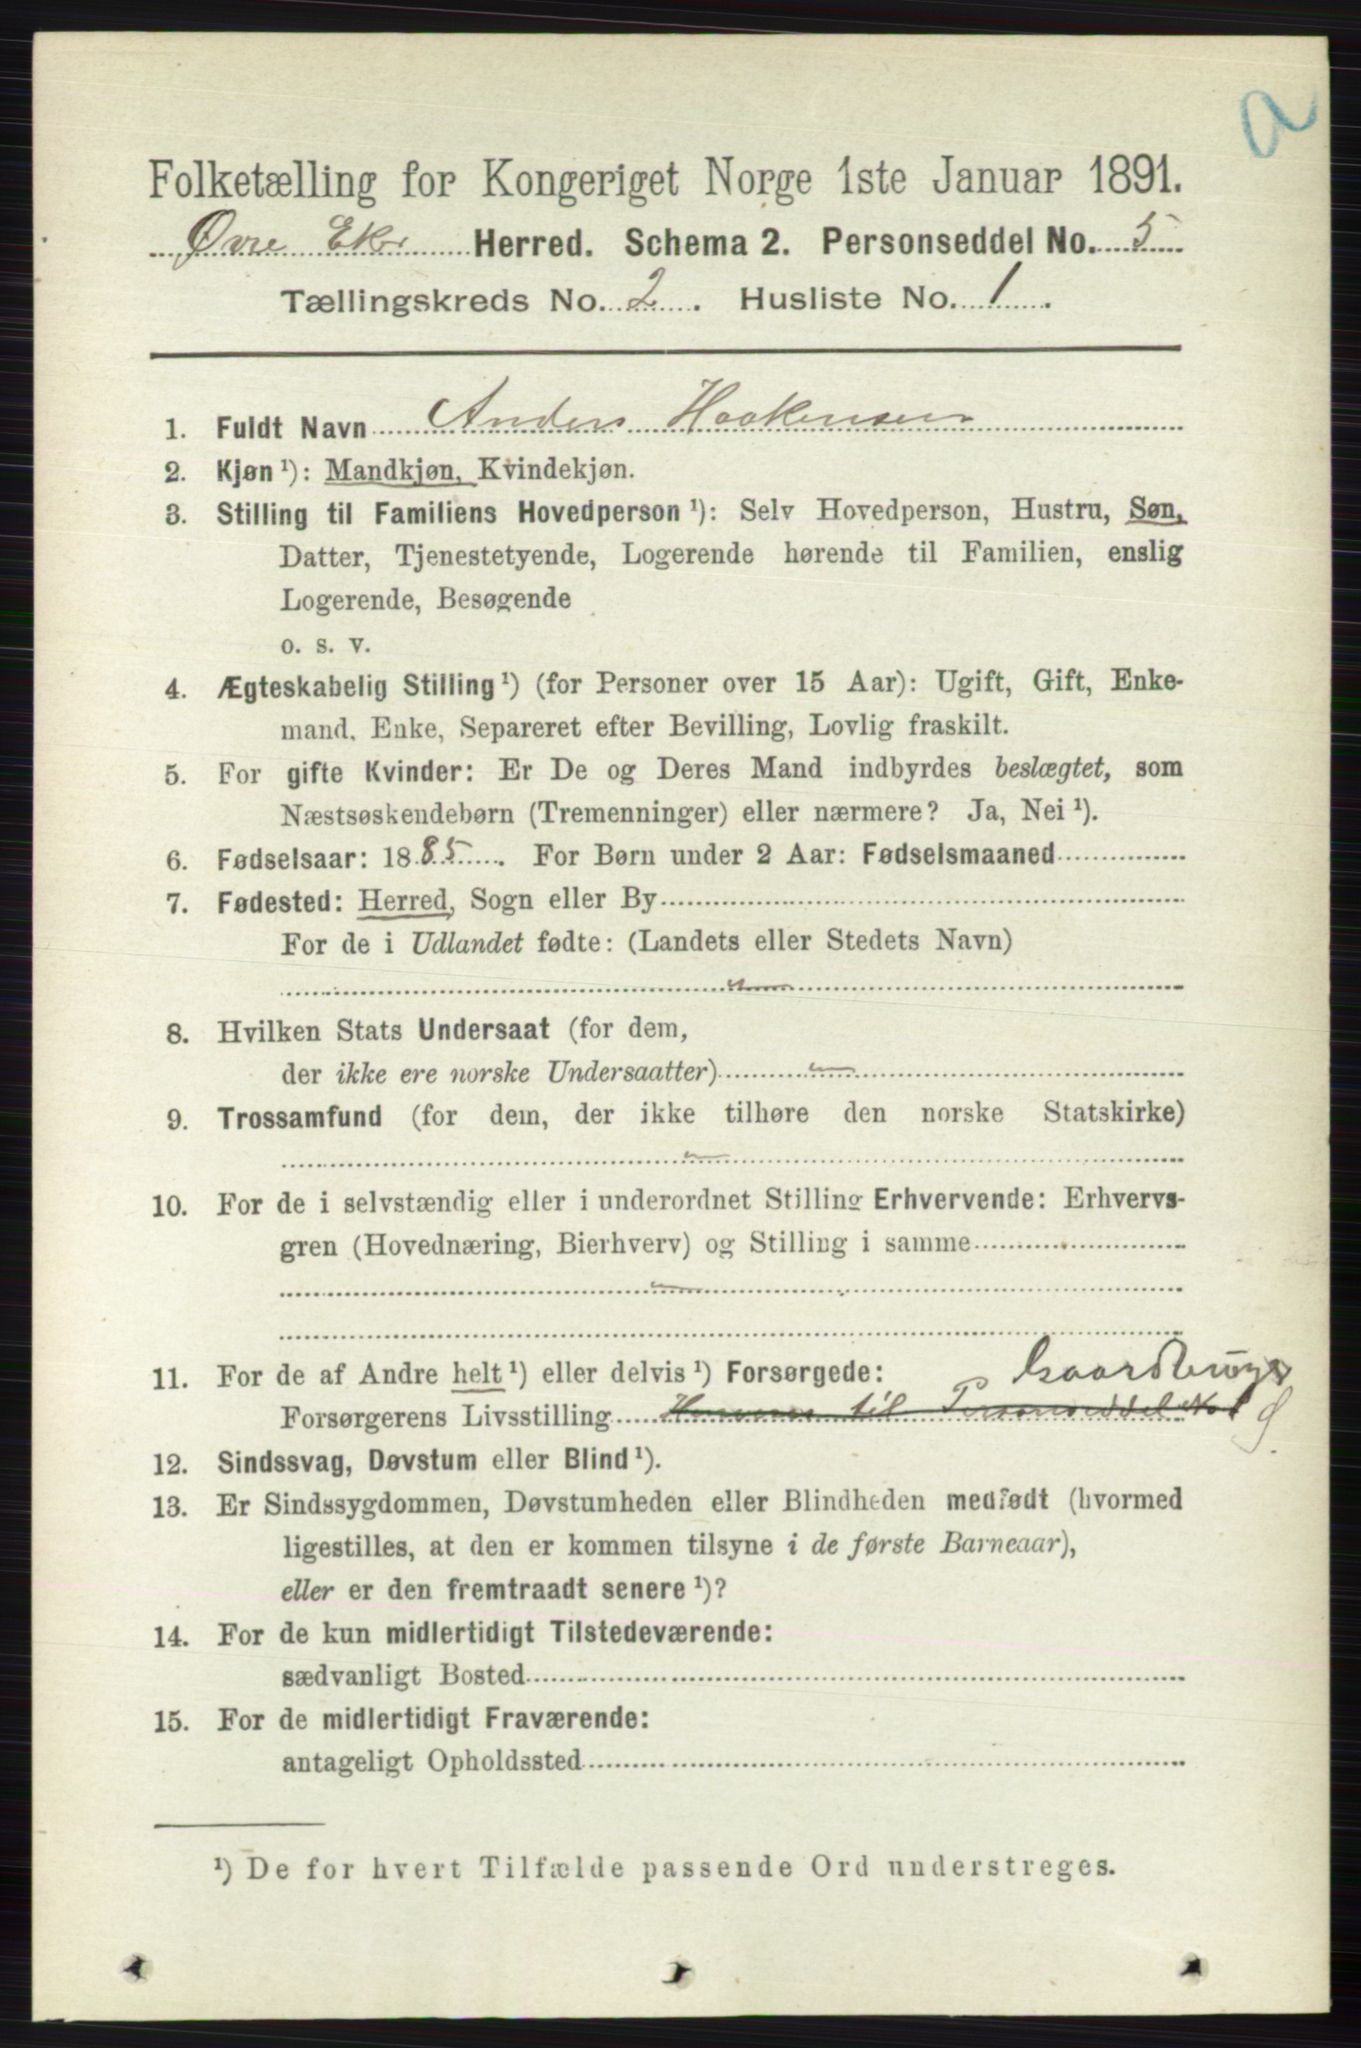 a
Folketælling for Kongeriget Norge 1ste Januar 1891.
Øvre Eker Herred. Schema 2. Personseddel No. 5
Tællingskreds No. 2. Husliste No. 1.
1. Fuldt Navn Anders Haakensen
2. Kjøn ¹): Mandkjøn, Kvindekjøn.
3. Stilling til Familiens Hovedperson ¹): Selv Hovedperson, Hustru, Søn,
Datter, Tjenestetyende, Logerende hørende til Familien, enslig
Logerende, Besøgende
o. s. v.
4. Ægteskabelig Stilling ¹) (for Personer over 15 Aar): Ugift, Gift, Enke-
mand, Enke, Separeret efter Bevilling, Lovlig fraskilt.
5. For gifte Kvinder: Er De og Deres Mand indbyrdes beslægtet, som
Næstsøskendebørn (Tremenninger) eller nærmere? Ja, Nei ¹).
6. Fødselsaar: 1885. For Børn under 2 Aar: Fødselsmaaned
7. Fødested: Herred, Sogn eller By
For de i Udlandet fødte: (Landets eller Stedets Navn)
8. Hvilken Stats Undersaat (for dem,
der ikke ere norske Undersaatter)
9. Trossamfund (for dem, der ikke tilhøre den norske Statskirke)
10. For de i selvstændig eller i underordnet Stilling Erhvervende: Erhvervs-
gren (Hovednæring, Bierhverv) og Stilling i samme
11. For de af Andre helt ¹) eller delvis ¹) Forsørgede: Gaardbruger
Forsørgerens Livsstilling til Personseddel No 1
12. Sindssvag, Døvstum eller Blind ¹).
13. Er Sindssygdommen, Døvstumheden eller Blindheden medfødt (hvormed
ligestilles, at den er kommen tilsyne i de første Barneaar),
eller er den fremtraadt senere ¹)?
14. For de kun midlertidigt Tilstedeværende:
sædvanligt Bosted
15. For de midlertidigt Fraværende:
antageligt Opholdssted
¹) De for hvert Tilfælde passende Ord understreges.